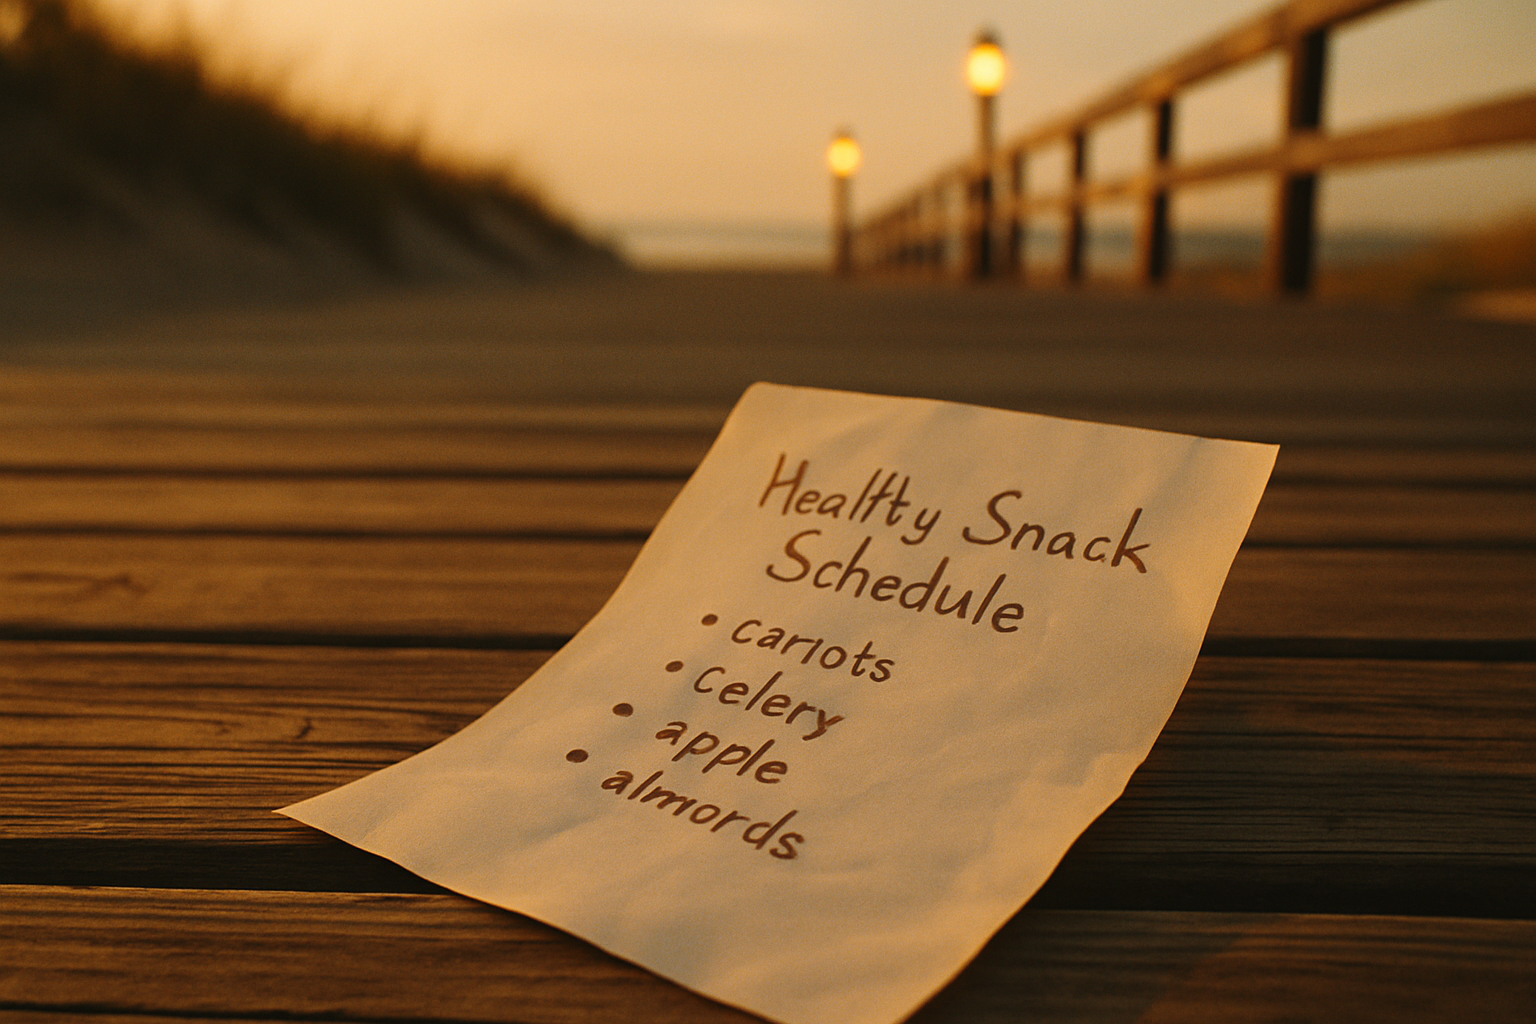 Healthy Snack
Schedule
• carrots
• celery
• apple
• almords